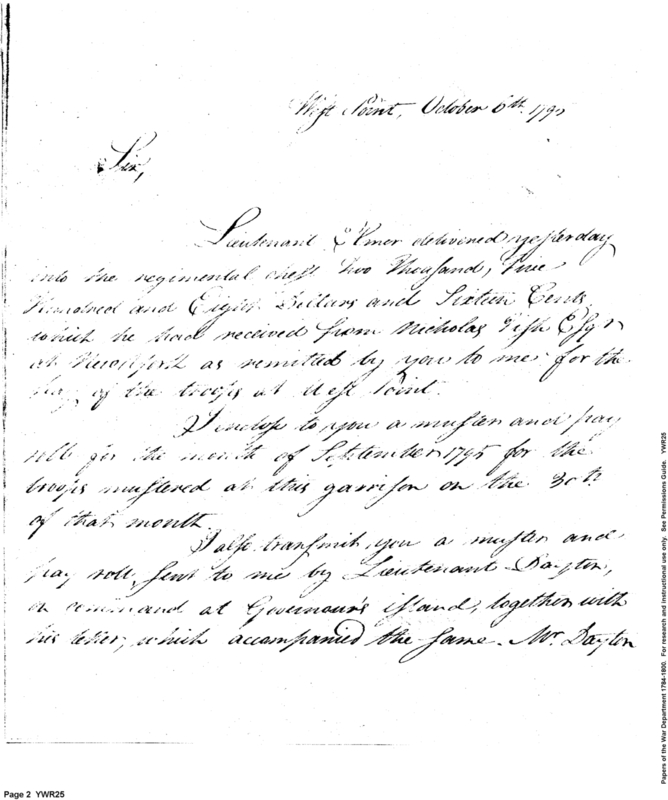 West Point, October 6th. 1795
Sir,
Lieutenant Elmer delivered yesterday
into the regimental chest two Thousand, five
Hundred and Eight Dollars and Sixteen Cents,
which he had received from Nicholas Fish Esqr
at as remitted by you to me for the
pay of the troops at West Point.
I inclose to you a muster and pay
roll for the month of September 1795 for the
troops mustered at this garrison on the 30th
of that month.
I also transmit you a muster and
pay roll, sent to me by Lieutenant Dayton,
on command at Governour's island, together with
his letter, which accompanied the same. Mr. Dayton
Page 2 YWR25
Papers of the War Department 1784-1800. For research and instructional use only. See Permissions Guide. YWR25